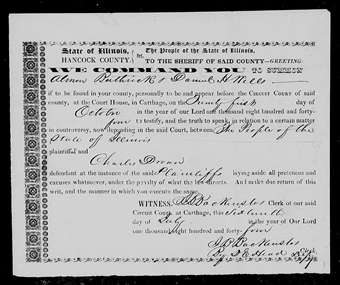 State of Illinois, The People of the State of Illinois,
HANCOCK COUNTY. TO THE SHERIFF OF SAID COUNTY—GREETING:
WE COMMAND YOU TO SUMMON
Almon Babbitt & Daniel H Wells
if to be found in your county, personally to be and appear before the CIRCUIT COURT of said
county, at the Court House, in Carthage, on the Twenty first day of
October in the year of our Lord one thousand eight hundred and forty-
four to testify, and the truth to speak, in relation to a certain matter
in controversy, now depending in the said Court, between The People of the
State of Illinois
plaintiff and
Charles
defendant at the instance of the said Plaintiffs laying aside all pretences and
excuses whatsoever, under the penalty of what the law directs. And make due return of this
writ, and the manner in which you execute the same.
WITNESS, J B Backenstos Clerk of our said
Circuit Court, at Carthage, this
day of July in the year of Our Lord
one thousand eight hundred and forty-four
J B Backenstos Clerk
By